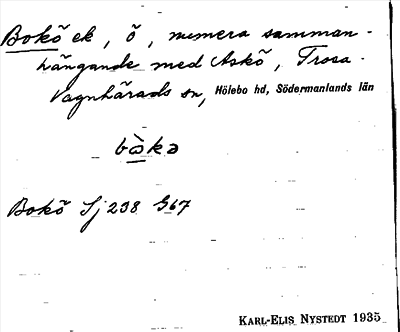 Bokö ek, ö, numera samman-
hängande med Askö, Trosa-
Vagnhärads sn, Hölebo hd, Södermanlands län
bò̤kə
Bokö Sj 238 G67
KARL-ELIS NYSTEDT 1935